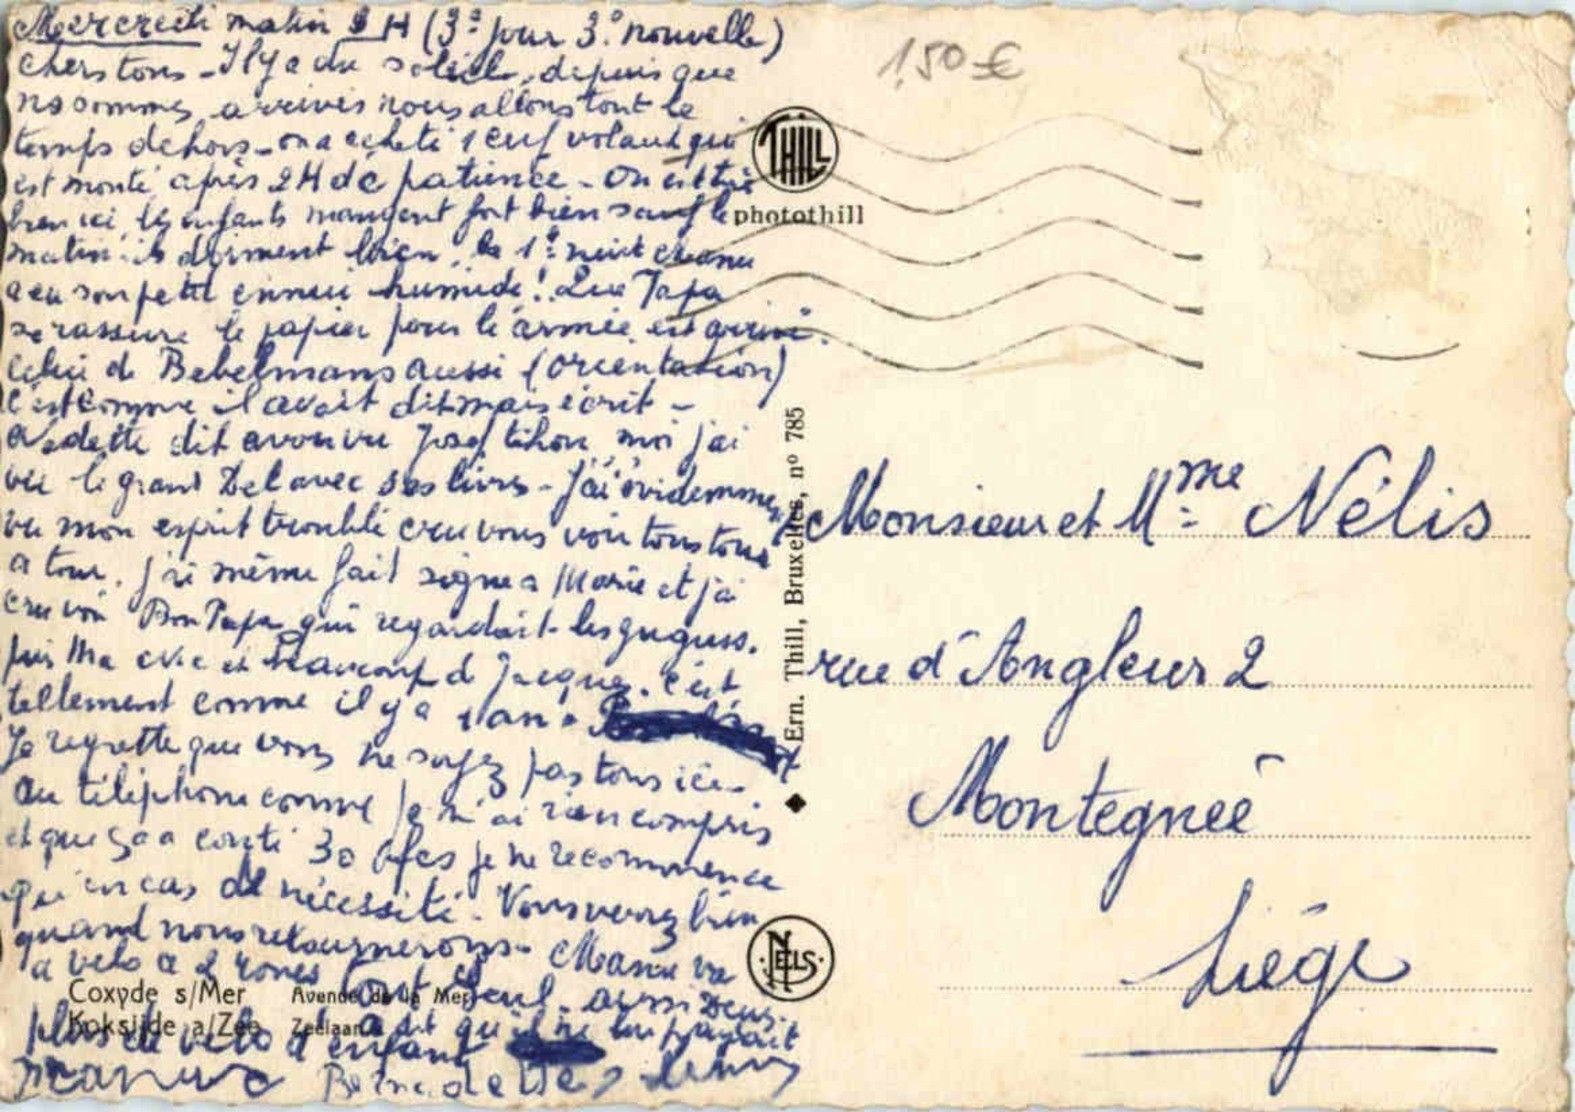 Mercredi matin 9 H (3e jour 3e nouvelle)
Chers tous - Il y a du soleil, depuis que
ns sommes arrivés nous allons tout le
temps dehors - on a acheté 1 cerf volant qui
est monté après 2 H de patience - On est très
bien ici, les enfants mangent fort bien sauf le
matin - ils dorment bien, la 1e nuit
a eu son petit ennui humide! Que Papa
se rassure le papier pour l'armée est arrivé.
Celui de Bebelmans aussi (orientation)
C'est comme il avait dit mais écrit -
dit avoir vu Josef tihon, moi j'ai
vu le grand Del avec ses livres - J'ai évidemment
vu mon esprit troublé cru vous voir tous tour
a tour. j'ai même fait signe a Marie et j'ai
cru voir Bon Papa qui regardait les guguss.
puis Ma et beaucoup d Jacques. C'est
tellement comme il y a 1 an.
Je regrette que vous ne soyez pas tous ici -
Au téléphone comme je n'ai rien compris
et que ça a couté 30 fcs je ne recommence
qu'en cas de nécessité - Vous verrez bien
quand nous retournerons - va
a velo a 2 roues tout seul - aussi Deus
a dit qu'il ne lui payait
plus de velo d'enfant
Bernadette
1,50 €
THILL
photothill
Ern. Thill, Bruxelles, nº 785
NELS
Coxyde s/Mer Avenue de la Mer
Koksijde a/Zee Zeelaan
Monsieur et Mme Nélis
rue d'Angleur 2
Montegnée
Liége